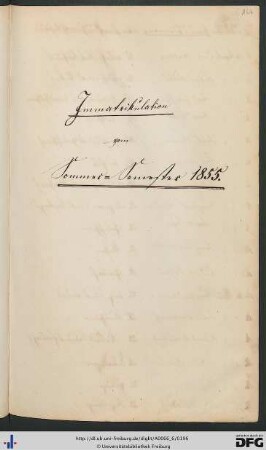 Immatrikulation
vom
Sommer= Semester 1855.
http://dl.ub.uni-freiburg.de/diglit/A0066_6/0196
© Universitätsbibliothek Freiburg
gefördert durch die
DFG